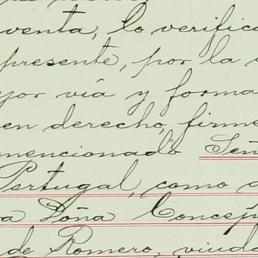 venta, lo verifica
presente, por la
yor vía y forma
en derecho, firme
mencionado Señ
Portugal, como
a Doña Concep
de Romero, viuda